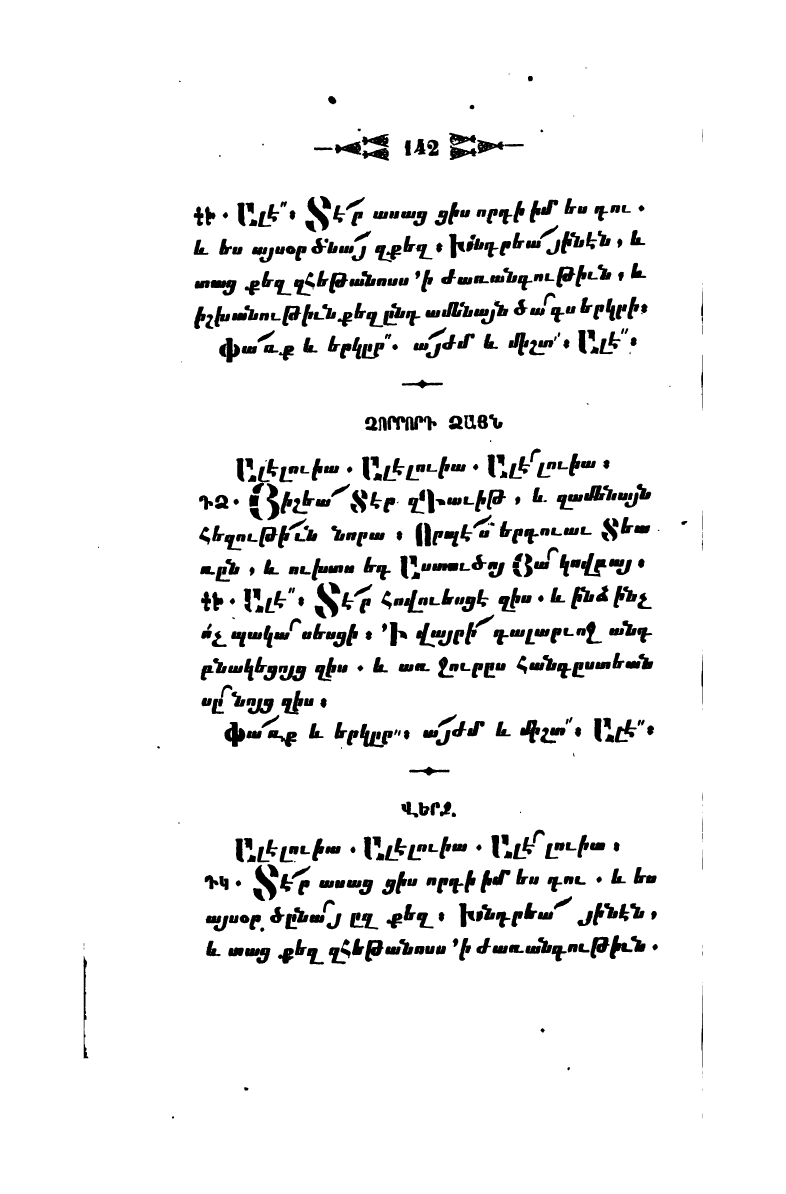 142
ԴԿ․ Ալէ՜՛՛։ Տէ՜ր ասաց ցիս որդի իմ ես դու․
և ես այսօր ծնա՜յ զքեզ։ Խնդրեա՜ յինէն, և
տաց քեզ զհեթանոսս ՚ի ժառանգութիւն, և
իշխանութիւն քեզ ընդ ամենայն ծա՜գս երկրի։
Փա՜ռք և երկրպ՛՛․ ա՜յժմ և միշտ՛՛։ Ալէ՛՛։
ՉՈՐՐՈՐԴ ՁԱՅՆ
Ալէլուիա․ Ալէլուիա․ Ալէ՜լուիա։
ԴՁ․ Յիշեա՜ Տէր զԴաւիթ, և զամենայն
հեզութի՜ւն նորա։ Որպէ՜ս երդուաւ Տեա
ռըն, և ուխտս եդ Աստուծոյ Յա՜կովբայ։
Ալէ՛՛։ Տէ՜ր հովուեսցէ զիս․ և ինձ ինչ
ո՛չ պակա՜սեսցի։ ՚Ի վայրի՜ դալարւոջ անդ
բնակեցոյց զիս․ և առ ջուրըս հանգըստեան
սը՜նոյց զիս։
Փա՜ռք և երկրպ՛՛։ ա՜յժմ և միշտ՛՛։ Ալէ՛՛։
ՎԵՐՋ․
Ալէլուիա․ Ալէլուիա․ Ալէ՜լուիա։
ԴԿ․ Տէ՜ր ասաց ցիս որդի իմ ես դու․ և ես
այսօր ծընա՜յ ըզ քեզ։ Խնդրեա՜ յինէն,
և տաց քեզ զհեթանոսս ՚ի ժառանգութիւն․